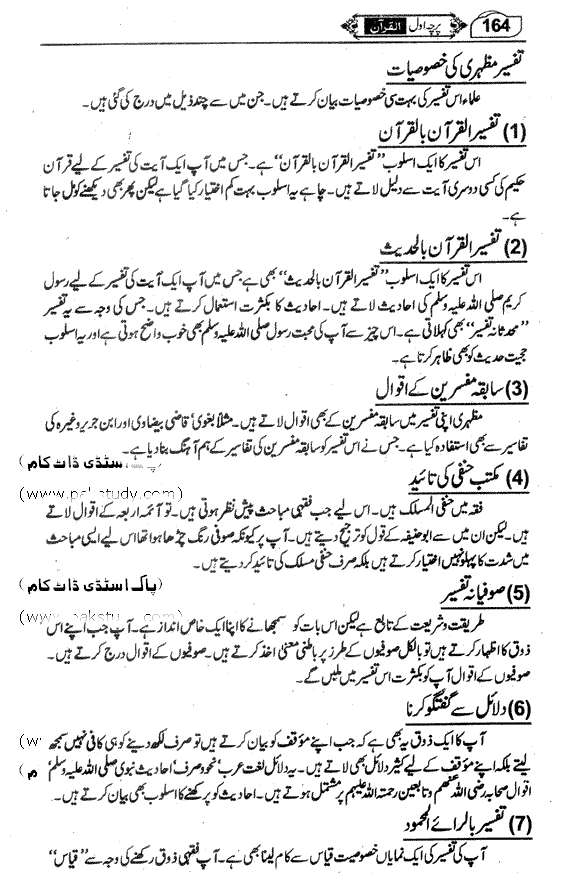 164 پرچہ اول القرآن
تفسیر مظہری کی خصوصیات
علماء اس تفسیر کی بہت سی خصوصیات بیان کرتے ہیں۔ جن میں سے چند ذیل میں درج کی گئی ہیں۔
(1) تفسیر القرآن بالقرآن
اس تفسیر کا ایک اسلوب "تفسیر القرآن بالقرآن" ہے۔ جس میں آپ ایک آیت کی تفسیر کے لیے قرآن
حکیم کی کسی دوسری آیت سے دلیل لاتے ہیں۔ چاہے یہ اسلوب بہت کم اختیار کیا گیا ہے لیکن پھر بھی دیکھنے کو مل جاتا
ہے۔
(2) تفسیر القرآن بالحدیث
اس تفسیر کا ایک اسلوب "تفسیر القرآن بالحدیث" بھی ہے جس میں آپ ایک آیت کی تفسیر کے لیے رسول
کریم صلی اللہ علیہ وسلم کی احادیث لاتے ہیں۔ احادیث کا بکثرت استعمال کرتے ہیں۔ جس کی وجہ سے یہ تفسیر
"محدثانہ تفسیر" بھی کہلاتی ہے۔ اس چیز سے آپ کی محبت رسول صلی اللہ علیہ وسلم بھی خوب واضح ہوتی ہے اور یہ اسلوب
حجیت حدیث کو بھی ظاہر کرتا ہے۔
(3) سابقہ مفسرین کے اقوال
مظہری اپنی تفسیر میں سابقہ مفسرین کے بھی اقوال لاتے ہیں۔ مثلاً بغوی' قاضی بیضاوی اور ابن جریر وغیرہ کی
تفاسیر سے بھی استفادہ کیا ہے۔ جس نے اس تفسیر کو سابقہ مفسرین کی تفاسیر کے ہم آہنگ بنا دیا ہے۔
اسٹڈی ڈاٹ کام)
(4) مکتب حنفی کی تائید
(www.pakstudy.com)
فقہ میں حنفی المسلک ہیں۔ اس لیے جب فقہی مباحث پیش نظر ہوتی ہیں۔ تو آئمہ اربعہ کے اقوال لاتے
ہیں۔ لیکن ان میں سے ابوحنیفہ کے قول کو ترجیح دیتے ہیں۔ آپ پر کیونکہ صوفی رنگ چڑھا ہوا تھا اس لیے ایسی مباحث
میں شدت کا پہلو نہیں اختیار کرتے ہیں بلکہ صرف حنفی مسلک کی تائید کر دیتے ہیں۔
(5) صوفیانہ تفسیر
(پاک اسٹڈی ڈاٹ کام)
طریقت و شریعت کے تابع ہے لیکن اس بات کو سمجھانے کا اپنا ایک خاص انداز ہے۔ آپ جب اپنے اس
ذوق کا اظہار کرتے ہیں تو بالکل صوفیوں کے طرز پر باطنی معنی اخذ کرتے ہیں۔ صوفیوں کے اقوال درج کرتے ہیں۔
صوفیوں کے اقوال آپ کو بکثرت اس تفسیر میں ملیں گے۔
(6) دلائل سے گفتگو کرنا
آپ کا ایک ذوق یہ بھی ہے کہ جب اپنے مؤقف کو بیان کرتے ہیں تو صرف لکھ دینے کو ہی کافی نہیں سمجھ
لیتے بلکہ اپنے مؤقف کے لیے کثیر دلائل بھی لاتے ہیں۔ یہ دلائل لغت عرب' نحو و صرف' احادیث نبوی صلی اللہ علیہ وسلم'
اقوال صحابہ رضی اللہ عنہم و تابعین رحمتہ اللہ علیہم پر مشتمل ہوتے ہیں۔ احادیث کو پرکھنے کا اسلوب بھی بیان کرتے ہیں۔
(7) تفسیر بالرائے المحمود
آپ کی تفسیر کی ایک نمایاں خصوصیت قیاس سے کام لینا بھی ہے۔ آپ فقہی ذوق رکھنے کی وجہ سے "قیاس"